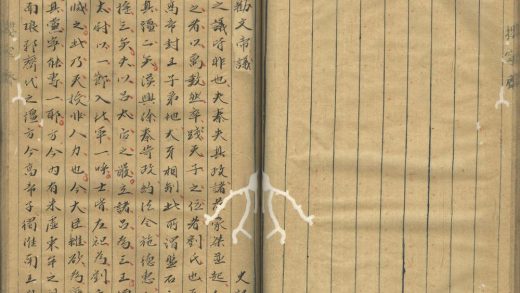 勸文帝議 史
之議皆非也夫秦失其政諸侯豪桀並起
之者以萬數然卒踐天子之位者劉氏也
高帝封王子弟地犬牙相制此所謂盤石
其彊二矣漢興除秦苛政約法令施德惠
三矣夫以呂太后之嚴立諸呂為三王
太尉以一節入北軍一呼士皆左袒為劉
滅之此乃天授非人力也今大臣雖欲為
其黨寧能專一邪方今內有朱虛東牟之
南琅邪齊代之彊方今高帝子獨淮南王